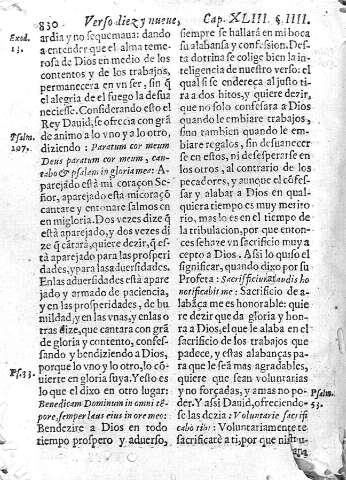 830 Verso diez y nueue, Cap. XLIII. §. IIII.
Exod. 13.
ardia y no se quemaua: dando
a entender que el alma teme-
rosa de Dios en medio de los
contentos y de los trabajos,
permanecera en vn ser, sin q̃
el alegria de el fuego la desua
neciesse. Considerando esto el
Rey Dauid, se ofrecia con grã
de animo a lo vno y a lo otro,
Psalm. 107.
diziendo : Paratum cor meum
Deus paratum cor meum, can-
tabo & psalam in gloria mea: A-
parejado está mi coraçon Se-
ñor, aparejado está mi coraçõ
cantare y entonare salmos en
mi gloria. Dos vezes dize q̃
está aparejado, y dos vezes di
ze q̃ cãtará, quiere dezir, q̃ es-
tà aparejado para las prosperi
dades, y para las aduersidades.
En las aduersidades está apare
jado y armado de paciencia,
y en las prosperidades, de hu-
mildad, y en las vnas, y en las o
tras dize, que cantara con grã
de gloria y contento, confes-
sando y bendiziendo a Dios,
porque lo vno y lo otro, lo cõ
uierte en gloria suya. Y esto es
Ps. 33.
lo que el dixo en otro lugar:
Benedicam Dominum in omni tẽ
pore, semper laus eius in ore meo:
Bendezire a Dios en todo
tiempo prospero y aduerso,
siempre se hallará en mi boca
su alabansa y confession. Des-
ta doctrina se colige bien la in-
teligencia de nuestro verso: el
qual si se endereça al justo ti-
ra a dos hitos, y quiere dezir,
que no solo confessara a Dios
quando le embiare trabajos,
sino tambien quando le em-
biare regalos, sin desuanecer
se en estos, ni desesperarse en
los otros, al contrario de los
pecadores, y aunque el cõfes-
sar y alabar a Dios en qual-
quiera tiempo es muy merito
rio, mas lo es en el tiempo de
la tribulacion, por que enton-
ces se haze vn sacrificio muy a
cepto a Dios. Assi lo quiso el
significar, quando dixo por su
Profeta : Sacrificium laudis ho
norificabit me : Sacrificio de a-
labãça me es honorable: quie
re dezir que da gloria y hon-
ra a Dios, el que le alaba en el
sacrificio de los trabajos que
padece, y estas alabanças pa-
ra que le seã mas agradables,
quiere que sean voluntarias
y no forçadas, y amas no po-
Psalm. 53.
der. Y assi Dauid, ofreciendo-
se las dezia : Voluntarie sacrifi
cabo tibi: Voluntariamente te
sacrificaré a ti, por que nistru-